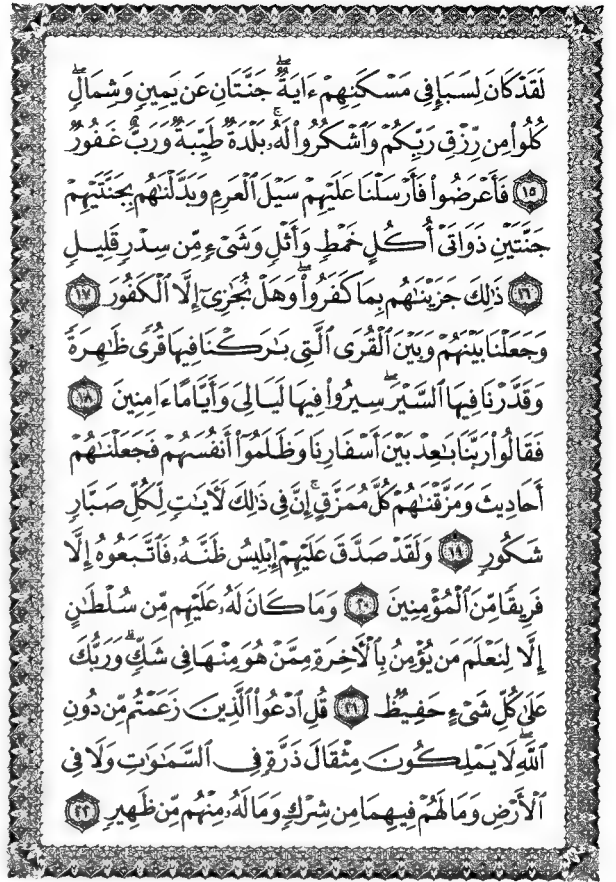 لَقَدْ كَانَ لِسَبَإٍ فِي مَسْكَنِهِمْ ءَايَةٌ ۖ جَنَّتَانِ عَن يَمِينٍ وَشِمَالٍ ۖ
كُلُوا۟ مِن رِّزْقِ رَبِّكُمْ وَٱشْكُرُوا۟ لَهُۥ ۚ بَلْدَةٌ طَيِّبَةٌ وَرَبٌّ غَفُورٌ
١٥ فَأَعْرَضُوا۟ فَأَرْسَلْنَا عَلَيْهِمْ سَيْلَ ٱلْعَرِمِ وَبَدَّلْنَـٰهُم بِجَنَّتَيْهِمْ
جَنَّتَيْنِ ذَوَاتَىْ أُكُلٍ خَمْطٍ وَأَثْلٍ وَشَىْءٍ مِّن سِدْرٍ قَلِيلٍ
١٦ ذَٰلِكَ جَزَيْنَـٰهُم بِمَا كَفَرُوا۟ ۖ وَهَلْ نُجَـٰزِىٓ إِلَّا ٱلْكَفُورَ ١٧
وَجَعَلْنَا بَيْنَهُمْ وَبَيْنَ ٱلْقُرَى ٱلَّتِى بَـٰرَكْنَا فِيهَا قُرًى ظَـٰهِرَةً
وَقَدَّرْنَا فِيهَا ٱلسَّيْرَ ۖ سِيرُوا۟ فِيهَا لَيَالِىَ وَأَيَّامًا ءَامِنِينَ ١٨
فَقَالُوا۟ رَبَّنَا بَـٰعِدْ بَيْنَ أَسْفَارِنَا وَظَلَمُوٓا۟ أَنفُسَهُمْ فَجَعَلْنَـٰهُمْ
أَحَادِيثَ وَمَزَّقْنَـٰهُمْ كُلَّ مُمَزَّقٍ ۚ إِنَّ فِى ذَٰلِكَ لَـَٔايَـٰتٍ لِّكُلِّ صَبَّارٍ
شَكُورٍ ١٩ وَلَقَدْ صَدَّقَ عَلَيْهِمْ إِبْلِيسُ ظَنَّهُۥ فَٱتَّبَعُوهُ إِلَّا
فَرِيقًا مِّنَ ٱلْمُؤْمِنِينَ ٢٠ وَمَا كَانَ لَهُۥ عَلَيْهِم مِّن سُلْطَـٰنٍ
إِلَّا لِنَعْلَمَ مَن يُؤْمِنُ بِٱلْـَٔاخِرَةِ مِمَّنْ هُوَ مِنْهَا فِى شَكٍّ ۗ وَرَبُّكَ
عَلَىٰ كُلِّ شَىْءٍ حَفِيظٌ ٢١ قُلِ ٱدْعُوا۟ ٱلَّذِينَ زَعَمْتُم مِّن دُونِ
ٱللَّهِ ۖ لَا يَمْلِكُونَ مِثْقَالَ ذَرَّةٍ فِى ٱلسَّمَـٰوَٰتِ وَلَا فِى
ٱلْأَرْضِ وَمَا لَهُمْ فِيهِمَا مِن شِرْكٍ وَمَا لَهُۥ مِنْهُم مِّن ظَهِيرٍ ٢٢